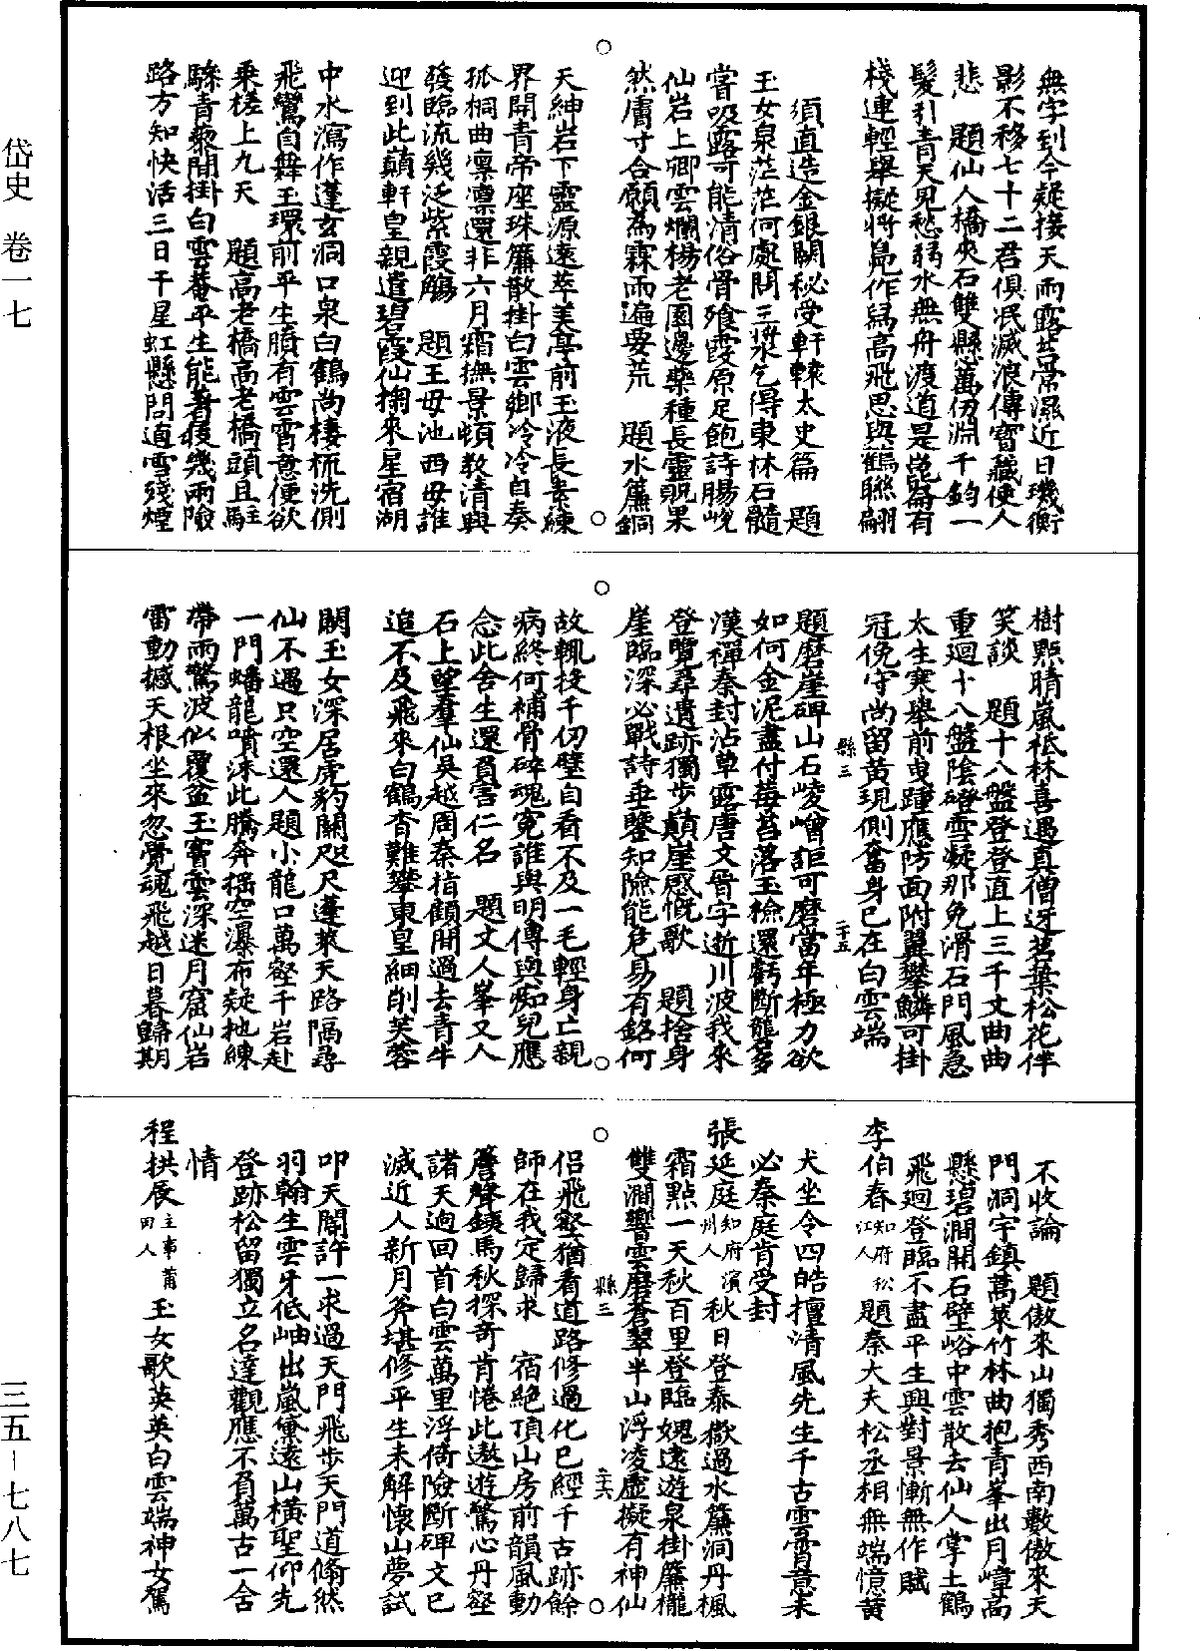 岱史　卷一七
三五－七八七
無字到今疑接天雨露苔常濕近日璣衡
影不移七十二君俱泯滅浪傳寶藏使人
悲　題仙人橋夾石雙懸萬仞淵千鈞一
髮引青天見愁弱水無舟渡道是崑崙有
棧連輕舉擬將鳧作舄高飛思與鶴聯翩
須直造金銀闕秘受軒轅太史篇　題
玉女泉茫茫何處問三洣乞得東林石髓
嘗吸露可能清俗骨飧霞原足飽詩腸峴
仙岩上卿雲爛楊老園邊藥種長靈貺果
然膚寸合願為霖雨遍要荒　題水簾銅
天紳岩下靈源遠萃美亭前玉液長素練
界開青帝座珠簾散掛白雲鄉泠泠自奏
孤桐曲凜凜還非六月霜撫景頓教清興
發臨流幾泛紫霞觴　題王母池西母誰
迎到此巔軒皇親遣碧霞仙搊來星宿湖
中水瀉作蓬玄洞口泉白鶴尚棲梳洗側
飛鸞自舞玉環前平生賸有雲霄意便欲
乘槎上九天　題高老橋高老橋頭且駐
驂青藜閒掛白雲菴平生能著幾兩險
路方知快活三日干星虹懸問道雪殘煙
樹點晴嵐秪林喜遇真僧迓茗葉松花伴
笑談　題十八盤登登直上三千丈曲曲
重迴十八盤陰磴雪凝那免滑石門風急
太生寒舉前曳踵應防面附翼攀鱗可掛
冠俛守尚留黃現側奮身已在白雲端
縣三
二十五
題磨崖碑山石崚嶒詎可磨當年極力欲
如何金泥盡付莓苔落玉檢還虧斷蘚多
漢禪秦封沾草露唐文晉字逝川波我來
登覽尋遺跡獨步巔崖感慨歌　題捨身
崖臨深必戰詩垂鑒知險能危易有銘何
故輒投千仞壁自看不及一毛輕身亡親
病終何補骨碎魂寃誰與明傳與痴兒應
念此舍生還負害仁名　題文人峯又人
石上望羣仙吳越周秦指顧間過去青牛
追不及飛來白鶴杳難攀東皇細削芙蓉
闕玉女深居虎豹關咫尺蓬萊天路隔尋
仙不遇只空還人題小龍口萬壑千岩赴
一門蟠龍噴沫此騰奔搖空瀑布疑拖練
帶雨驚波似覆盆玉竇雲深迷月窟仙岩
雷動撼天根坐來忽覺魂飛越日暮歸期
不收論　題傲來山獨秀西南數傲來天
門洞宇鎮萬萊竹林曲抱青峯出月嶂高
懸碧澗開石壁峪中雲散去仙人掌上鶴
飛迴登臨不盡平生興對景慚無作賦
李伯春知府松江人題秦大夫松丞相無端憶黃
犬坐令四皓擅清風先生千古雲霄意未
必秦庭肯受封
張延庭知府濱州人　秋日登泰嶽過水簾洞丹楓
霜點一天秋百里登臨媿遠遊泉掛簾櫳
雙澗響雲磨蒼翠半山浮凌虛擬有神仙
縣三
二十六
侶飛壑猶看道路修過化已經千古跡餘
師在我定歸求　宿絕頂山房前韻風動
簷聲鐵馬秋探奇肯惓此遨遊驚心丹壑
諸天逈回首白雲萬里浮倚險斷碑文已
滅近人新月斧堪修平生未解懷山夢試
叩天閽許一求過天門飛步天門道翛然
羽翰生雲牙低岫出嵐黛遠山橫聖仰先
登跡松留獨立名達觀應不負萬古一舍
情
程拱辰主事莆田人　玉女歌英英白雲端神女駕